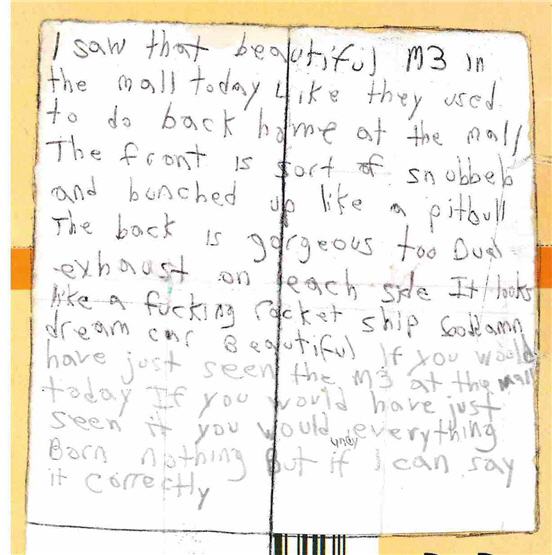 I saw that beautiful M3 in
the mall today Like they used
to do back home at the mall
The front is sort of snubbeb
and bunched up like a pitbull
The back is gorgeous too Dual
exhaust on each side It looks
like a fucking rocket ship Goddamn
dream car Beautiful If you would
have just seen the M3 at the mall
today If you would have just
seen it you would everything
Born nothing But if I can say
it correctly